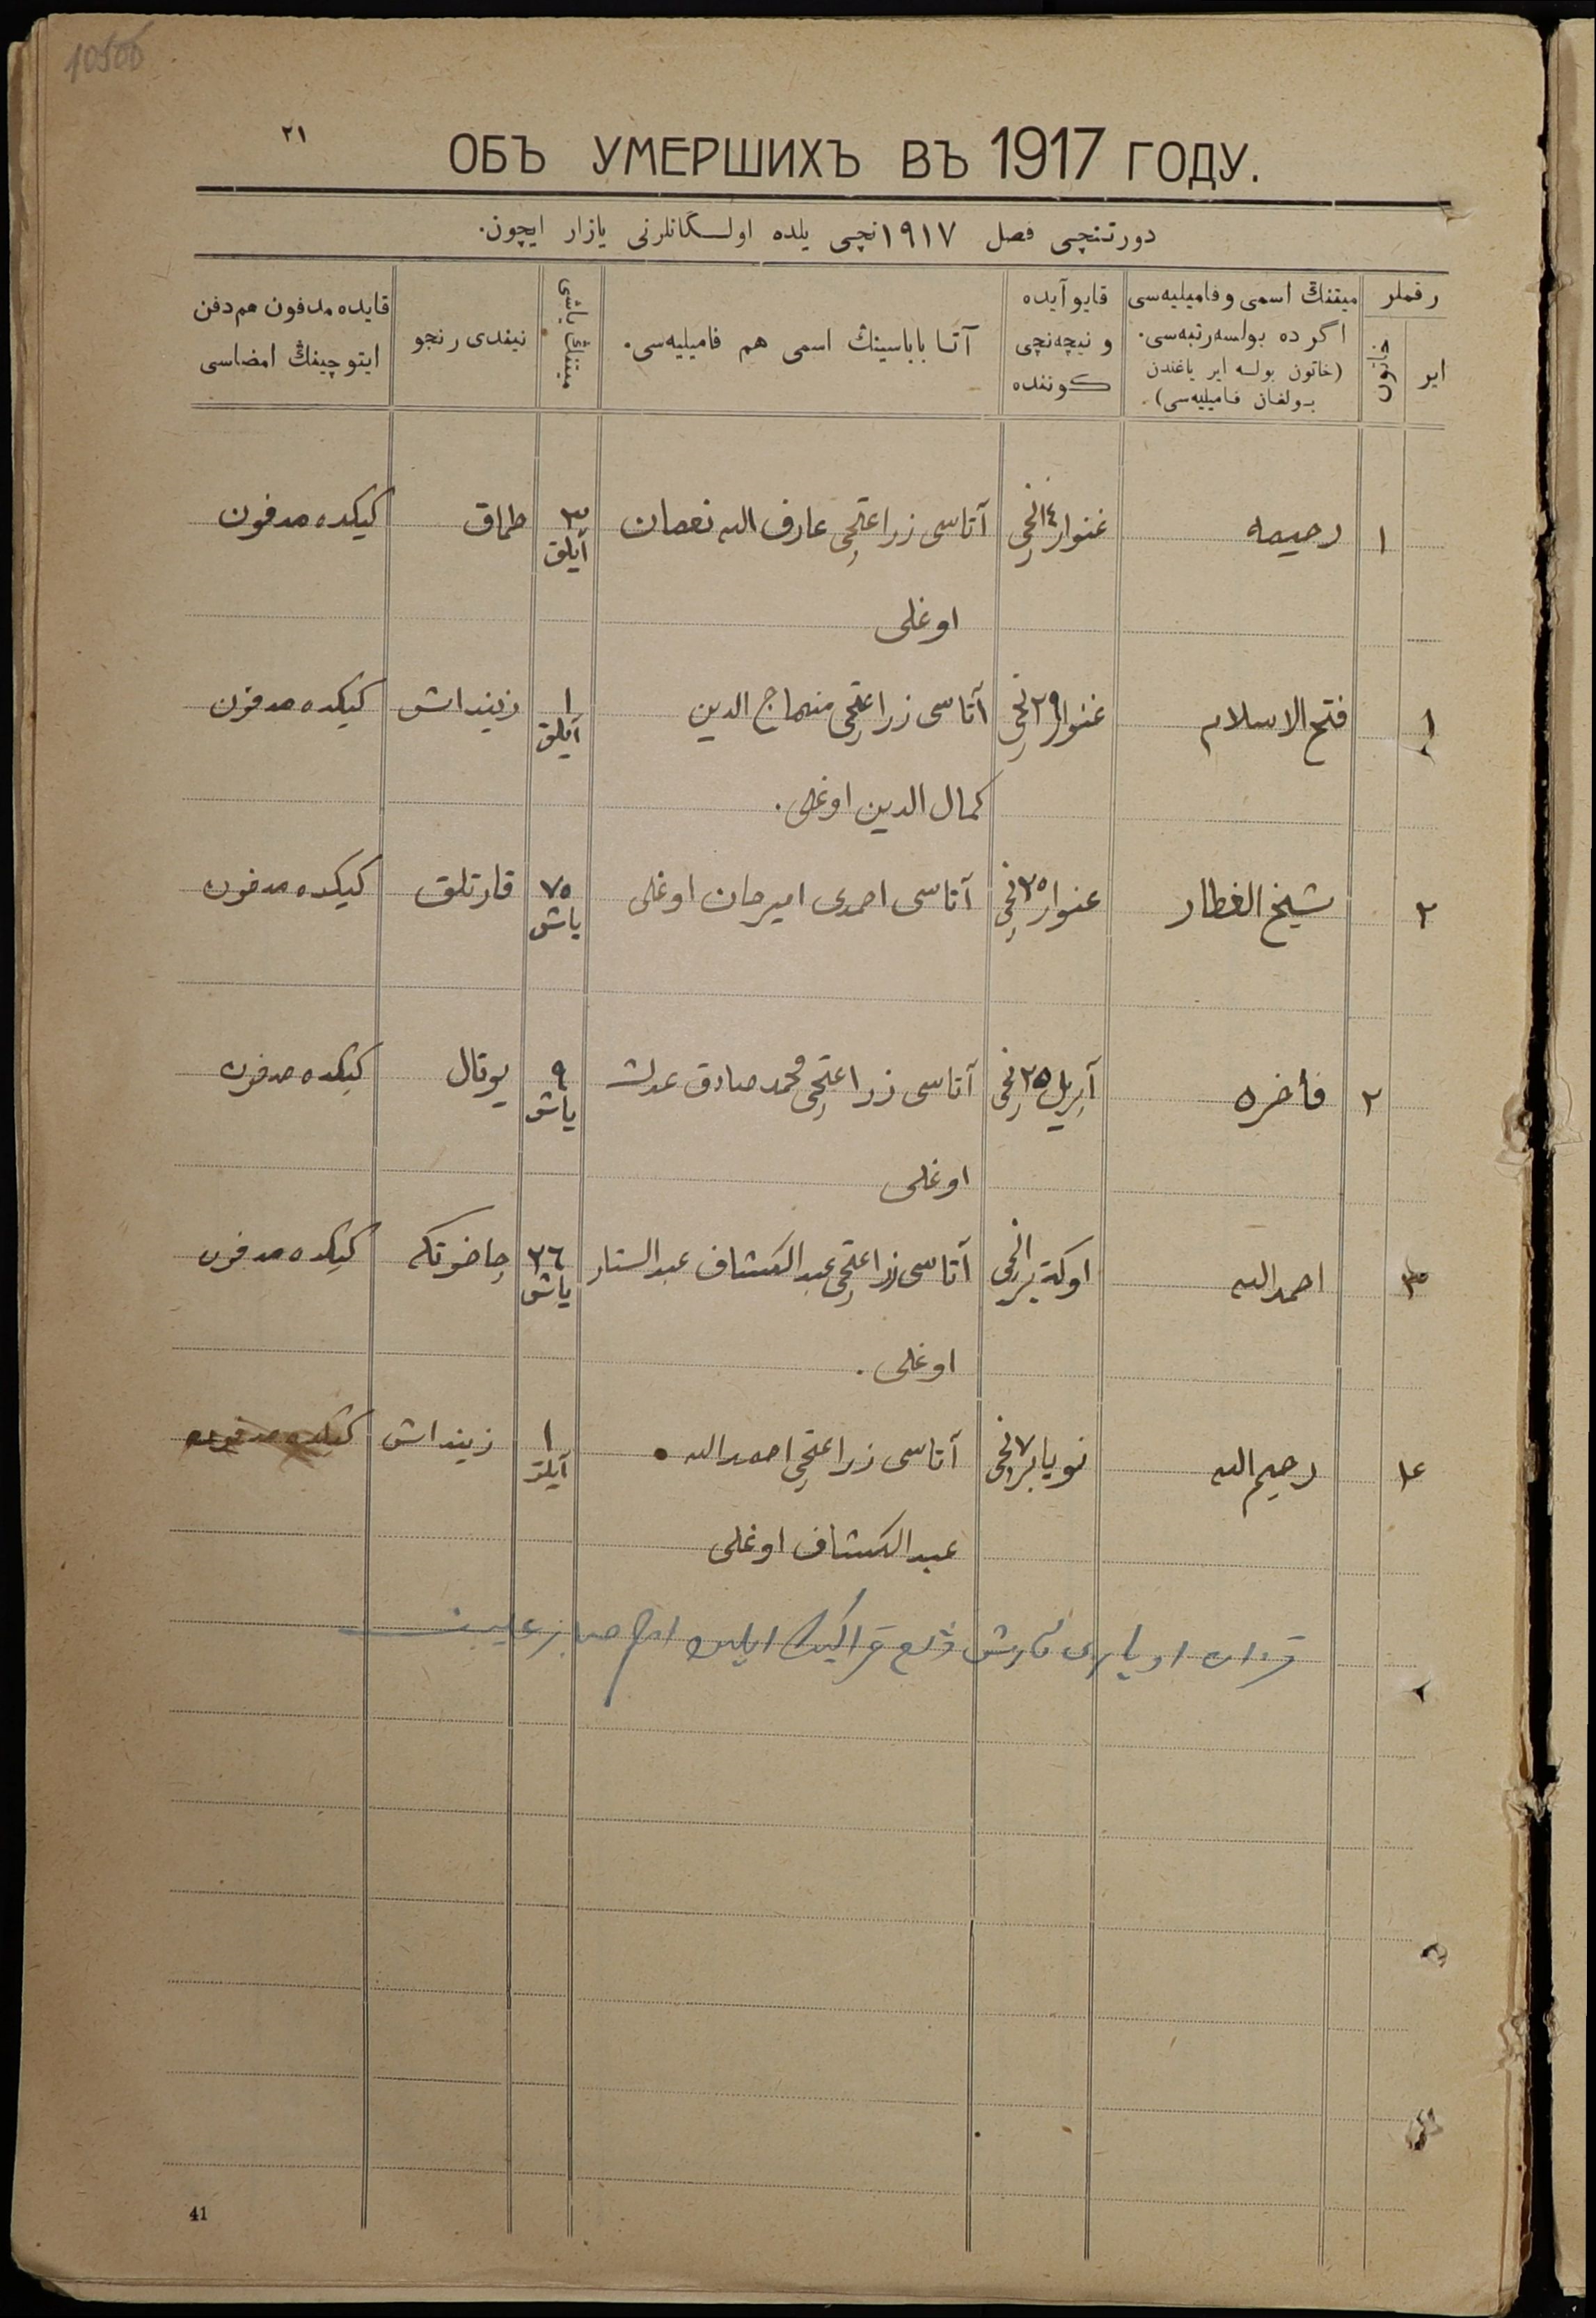 10506
٢١
ОБЪ УМЕРШИХЪ ВЪ 1917 ГОДУ.
دورتنچی فصل ١٩١٧ نچی یلده اولـگانلرنی یازار ایچون.
رقملر
ایر
خاتون
میتنڭ اسمی و فامیلیه‌سی
اگرده بولسه رتبه‌سی.
(خاتون بولسه ایر یاغندن
بولغان فامیلیه‌سی).
قایو آیده
و نیچه‌نچی
كوننده
آتا باباسینڭ اسمی هم فامیلیه‌سی.
میتنڭ یاشی
نیندی رنجو
قایده مدفون هم دفن
ایتوچینڭ امضاسی
١ رحیمه غنوار ١٤ نچی آتاسی زراعتچی عارف الله نعمان ٣ آیلق طماق كیكده مدفون
اوغلی
١ فتح الاسلام غنوار ٢٩ نچی آتاسی زراعتچی منهاج الدین ١ آیلق زینداش كیكده مدفون
كمال الدین اوغلی.
٢ شیخ العطار غنوار ٢٥ نچی آتاسی احمدی امیرخان اوغلی ٧٥ یاش قارتلق كیكده مدفون
٢ فاخره آپریل ٢٥ نچی آتاسی زراعتچی محمد صادق ٩ یاش یوتال كیكده مدفون
اوغلی
٣ احمدالله اوكتەبر ١ نچی آتاسی زراعتچی عبدالكشاف عبدالستار ٣٦ یاش چاخوتكه كیكده مدفون
اوغلی.
٤ رحیم الله نویابر ٧ نچی آتاسی زراعتچی احمدالله ١ آیلق زینداش كیكده مدفون
عبدالكشاف اوغلی
41